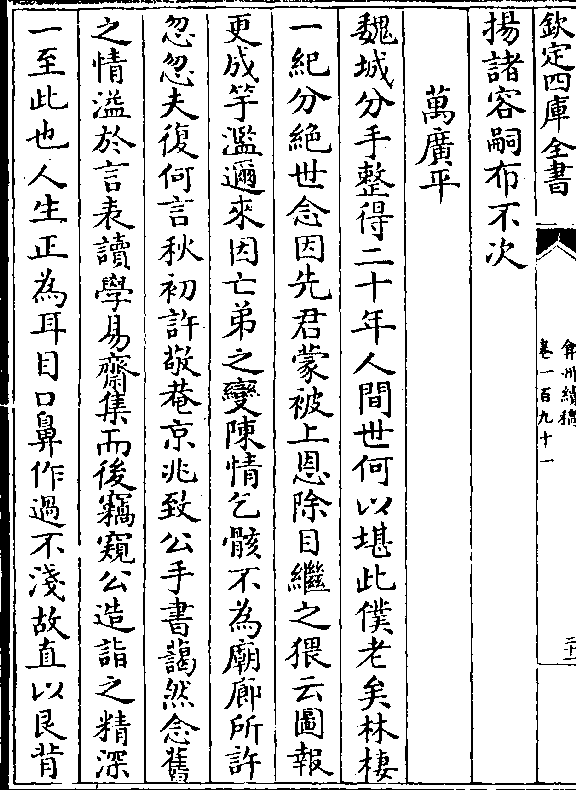 欽定四庫全書
弇州續稿
卷一百九十一
二十一
揚諸容嗣布不次
萬廣平
魏城分手整得二十年人間世何以堪此僕老矣林棲
一紀分絕世念因先君蒙被上恩除目繼之猥云圖報
更成竽濫邇來因亡弟之變陳情乞骸不為廟廊所許
忽忽夫復何言秋初許敬菴京兆致公手書藹然念舊
之情溢於言表讀學易齋集而後竊窺公造詣之精深
一至此也人生正為耳目口鼻作過不淺故直以艮背